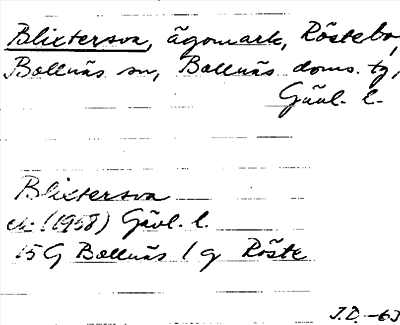 Blixtersva, ägomark, Röstebo,
Bollnäs sn, Bollnäs doms. tg,
Gävl. l.
Blixtersva
ek. (1958) Gävl. l.
15 G Bollnäs 1 g Röste
J.D. -63